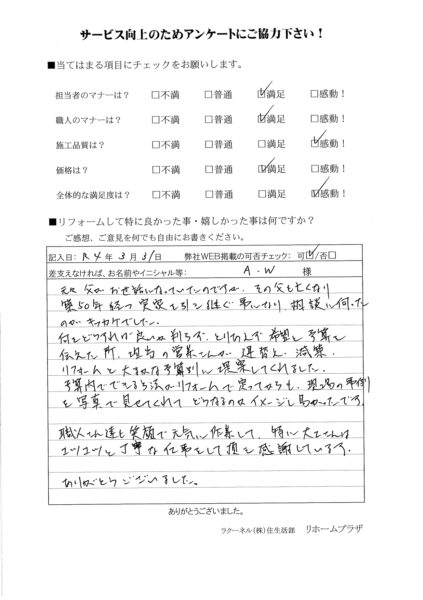 サービス向上のためアンケートにご協力下さい！
■当てはまる項目にチェックをお願いします。
担当者のマナーは？ □不満 □普通 ☑満足 □感動！
職人のマナーは？ □不満 □普通 ☑満足 □感動！
施工品質は？ □不満 □普通 □満足 ☑感動！
価格は？ □不満 □普通 ☑満足 □感動！
全体的な満足度は？ □不満 □普通 □満足 ☑感動！
■リフォームして特に良かった事・嬉しかった事は何ですか？
ご感想、ご意見を何でも自由にお書きください。
記入日： R4年3月31日 弊社WEB掲載の可否チェック： 可☑/否□
差支えなければ、お名前やイニシャル等： A-W 様
元々父がお世話になっていたのですが、その父も亡くなり
築50年経つ実家を引き継ぐ事になり相談に伺った
のがキッカケでした。
何をどうすれば良いか判らず、とりあえず希望と予算を
伝えた所、担当の営業さんが建替え、減築、
リフォームと大まかな予算別に提案してくれました。
予算内でできる方法がリフォームで決ってからも、現場の事例
を写真で見せてくれてどうなるのかイメージし易かったです。
職人さん達も笑顔で元気に作業して、特に大工さんは
コツコツと丁寧な仕事をして頂き感謝しています。
ありがとうございました。
ありがとうございました。
ラクーネル（株）住生活部 リホームプラザ